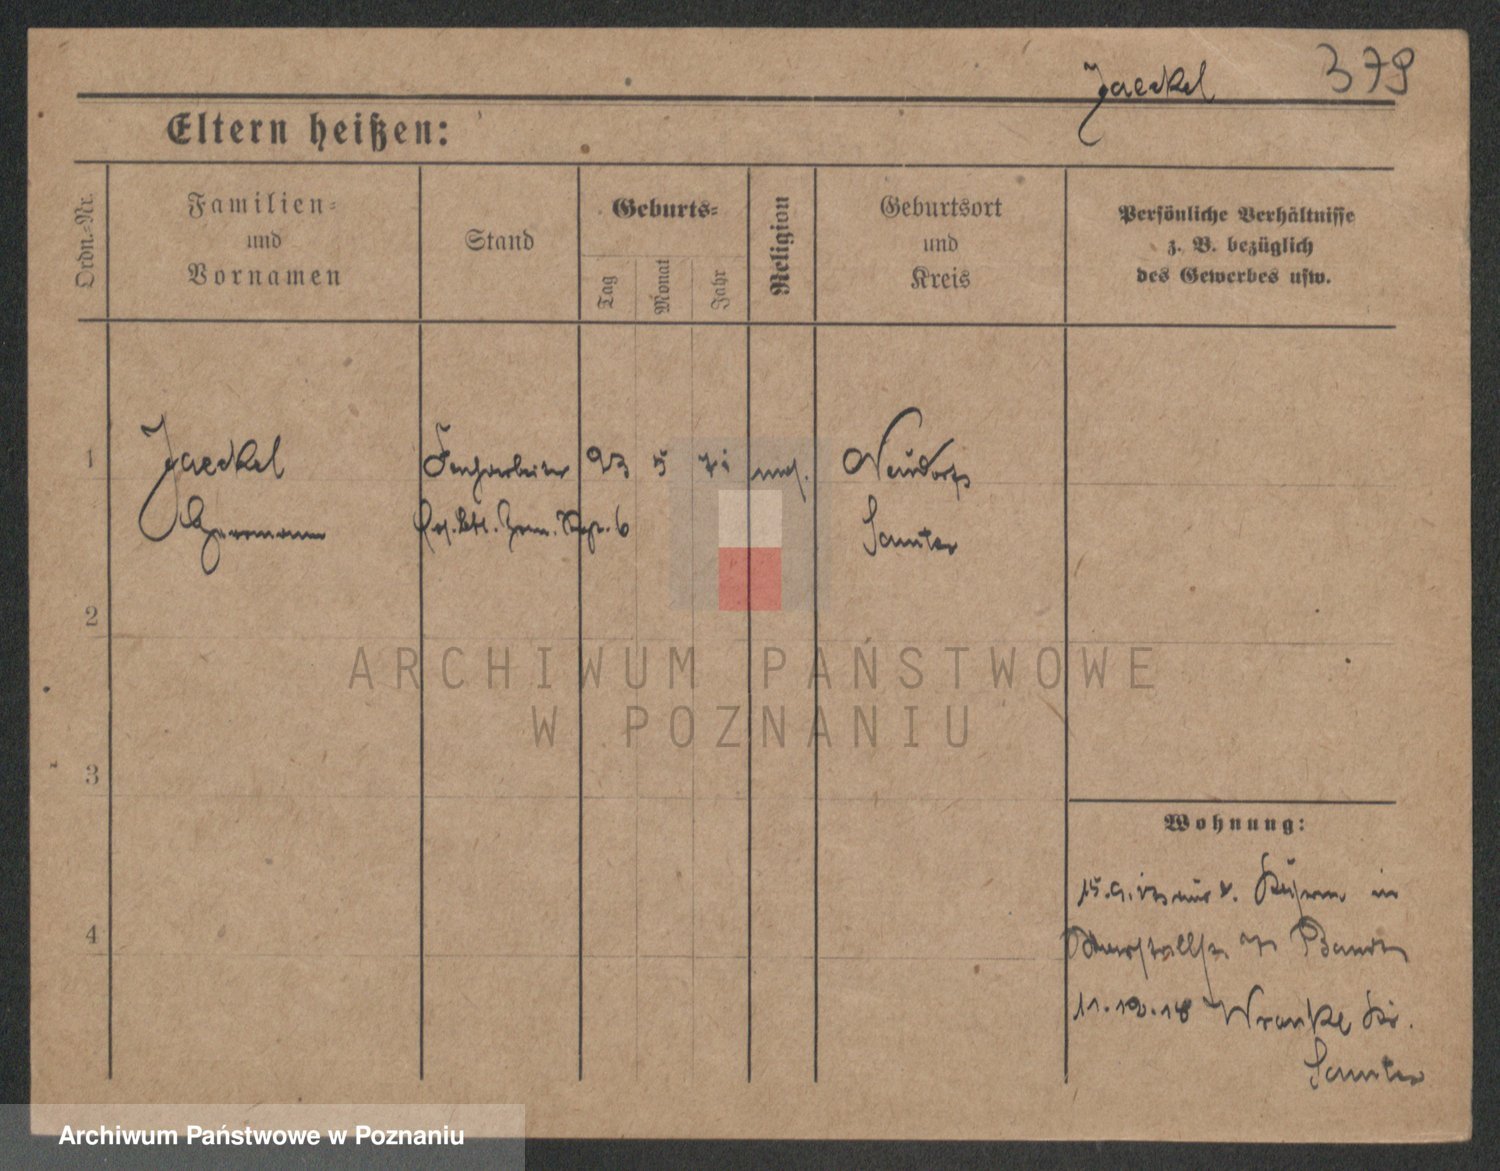 Jaeckel 379
Eltern heißen:
Ordn.-Nr.
Familien-
und
Vornamen
Stand
Geburts-
Tag
Monat
Jahr
Religion
Geburtsort
und
Kreis
Persönliche Verhältnisse
z. B. bezüglich
des Gewerbes usw.
1
Jaeckel
23 5 71
Neudorf
Hermann
Samter
2
3
4
Wohnung:
15.9. v. in
11.12.18 Wronke Kr.
Samter
ARCHIWUM PAŃSTWOWE
W POZNANIU
Archiwum Państwowe w Poznaniu